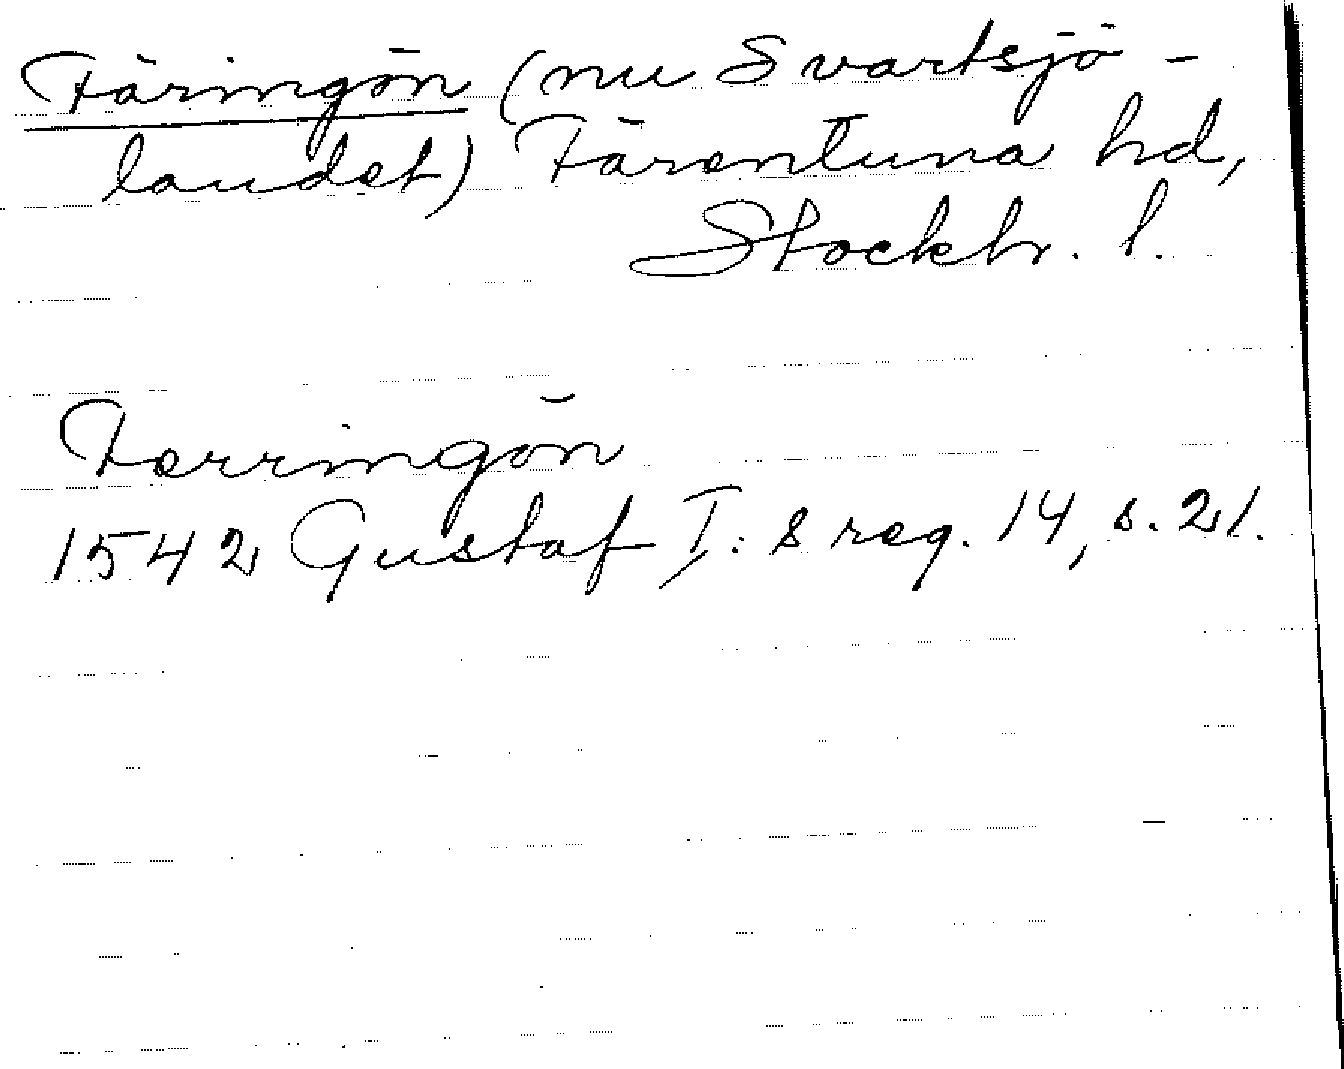 Färingön (nu Svartsjö-
landet) Färentuna hd,
Stockh. l.
Ferringön
1542 Gustaf I:s reg. 14, s. 21.